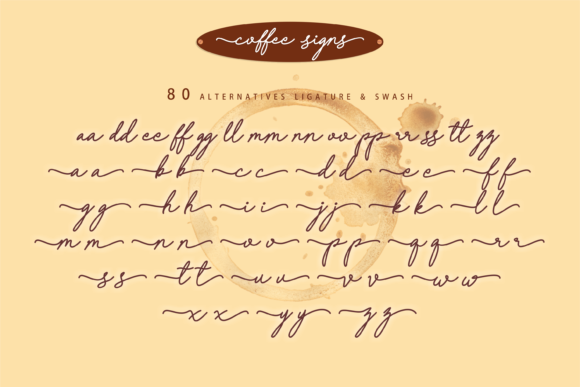 coffee signs
80 ALTERNATIVES LIGATURE & SWASH
aa dd ee ff gg ll mm nn oo pp rr ss tt zz
a a b b c c d d e e f f
g g h h i i j j k k l l
m m n n o o p p q q r r
s s t t u u v v w w
x x y y z z